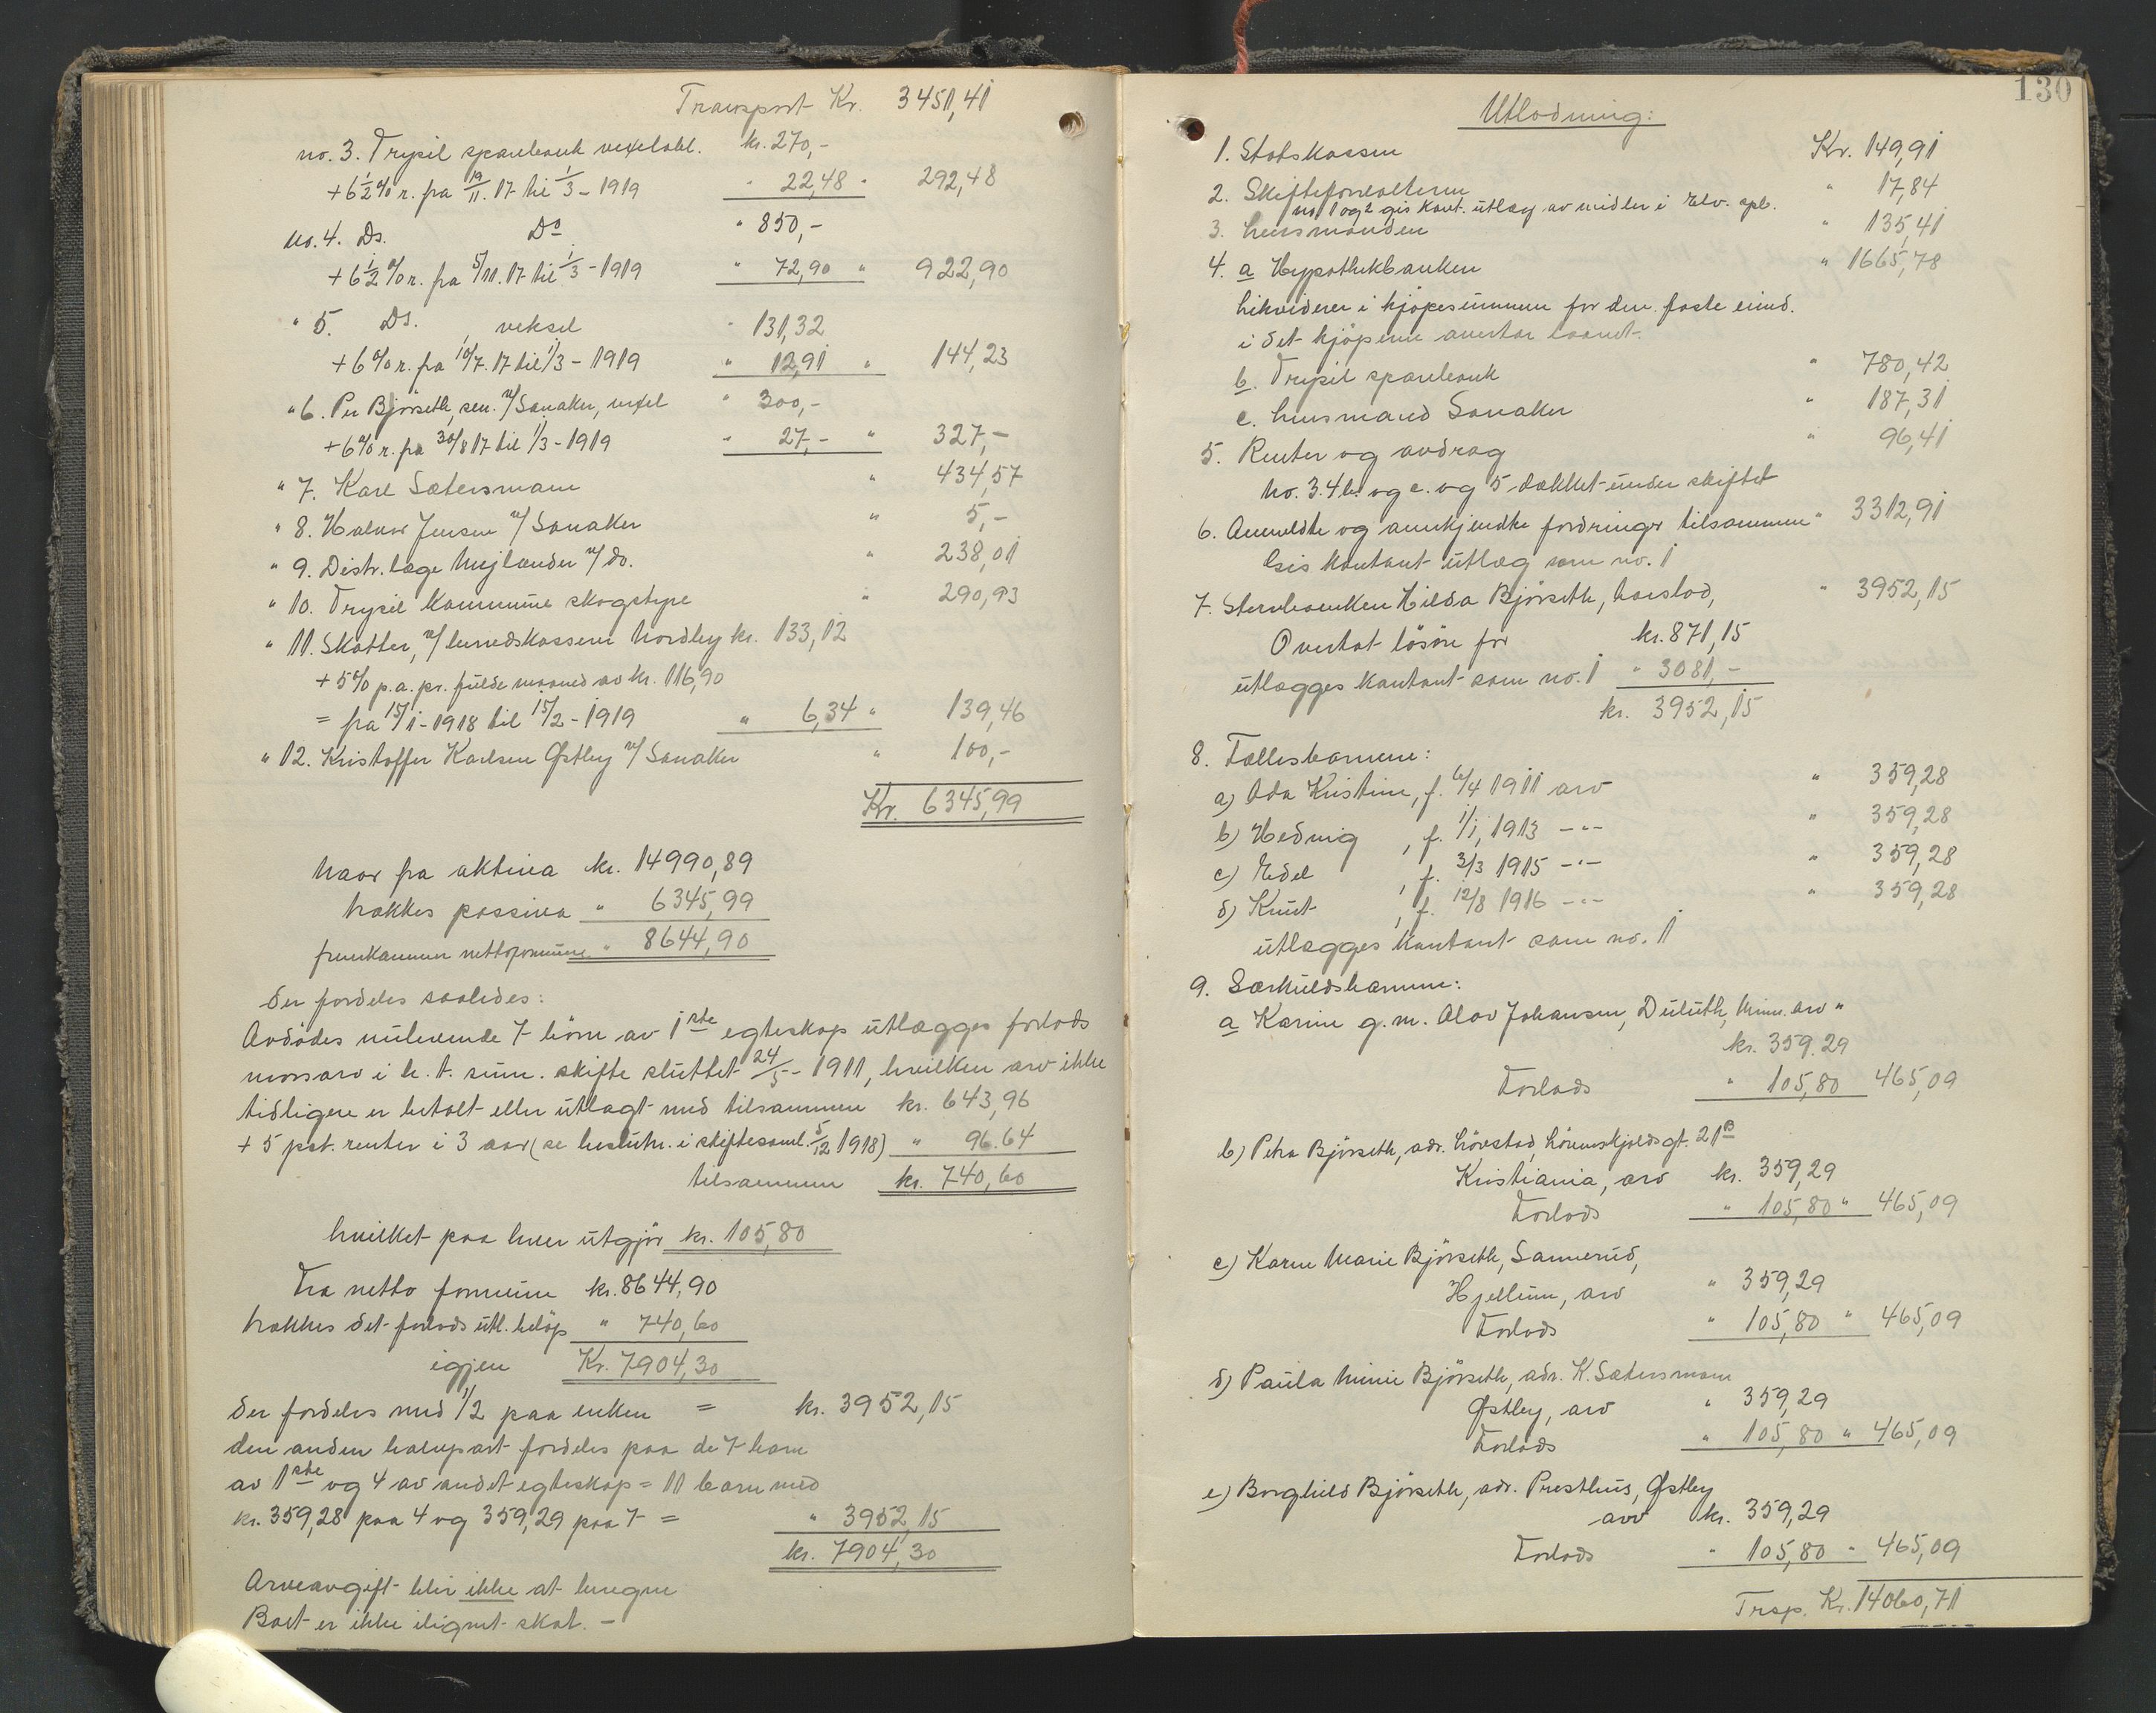 Transport Kr. 3451,41
no. 3. Trysil sparebank vexelobl. kr. 270,-
+ 6 1/2 % r. fra 19/11. 17 til 1/3 - 1919 " 22,48 " 292,48
no. 4. Ds. Do " 850,-
+ 6 1/2 % r. fra 5/11. 17 til 1/3 - 1919 " 72,90 " 922,90
" 5. Ds. veksel " 131,32
+ 6 % r. fra 10/7. 17 til 1/3 - 1919 " 12,91 " 144,23
" 6. Per Björseth, sen. v/ Sanaker, vexel " 300,-
+ 6 % r. fra 30/8 17 til 1/3 - 1919 " 27,- " 327,-
" 7. Karl Sætersmoen " 434,57
" 8. Halvor Jensen v/ Sanaker " 5,-
" 9. Distr. læge Mejlænder v/ do. " 238,01
" 10. Trysil kommune skogstyre " 290,93
" 11. Skatter, v/ herredskasserer Nordby kr. 133,12
+ 5 % p.a. pr. fulde maaned av kr. 116,90
= fra 15/1 - 1918 til 15/2 - 1919 " 6,34 " 139,46
" 12. Kristoffer Karlsen Østby v/ Sanaker " 100,-
Kr. 6345,99
Naar fra aktiva kr. 14990,89
trækkes passiva " 6345,99
fremkommer nettoformue " 8644,90
der fordeles saaledes:
Avdødes nulevende 7 börn av 1ste egteskap utlægges forlods
morsarv i h. t. sum. skifte sluttet 24/5 - 1911, hvilken arv ikke
tidligere er betalt eller utlagt med tilsammen kr. 643,96
+ 5 pst. renter i 3 aar (se beslutn. i skiftesaml. 5/12 1918) " 96.64
tilsammen kr. 740,60
hvilket paa hver utgjör kr. 105,80
Fra netto formuen kr. 8644,90
trækkes det forlods utl. belöp " 740,60
igjen Kr. 7904,30
der fordeles med 1/2 paa enken = kr. 3952,15
den anden halvpart fordeles paa de 7 barn
av 1ste og 4 av andet egteskap = 11 barn med
kr. 359,28 paa 4 og 359,29 paa 7 = " 3952,15
kr. 7904,30
Arveavgift blir ikke at beregne
Boet er ikke ilignet skat. -
130
Utlodning:
1. Statskassen Kr. 149,91
2. Skifteforvalteren " 17,84
no. 1 og 2 gis kont. utlæg av midler i Elv. spb.
3. Lensmanden " 135,41
4. a Hypothekbanken " 1665,78
Likviderer i kjøpesummen for den faste eiend.
i det kjöperen overtar laanet.
b. Trysil sparebank " 780,42
c. Lensmand Sanaker " 187,31
5. Renter og avdrag " 96,41
No. 3. 4 b. og c. og 5 dækket under skiftet
6. Anmeldte og anerkjendte fordringer tilsammen " 3312,91
Gis kontant utlæg som no. 1
7. Stervboenken Hilda Björseth, boeslod, " 3952,15
Overtat lösöre for kr. 871,15
utlægges kontant som no. 1 " 3081,-
kr. 3952,15
8. Fællesbarnene:
a) Oda Kristine, f. 6/4 1911 arv " 359,28
b) Hedvig , f. 1/1, 1913 -"- " 359,28
c) Edel , f. 3/3 1915 -"- " 359,28
d) Knut , f. 12/8 1916 -"- " 359,28
utlægges kontant som no. 1
9. Særkuldsbarnene:
a Karine g. m. Olav Johansen, Duluth, Minn. arv "
kr. 359.29
Forlods " 105,80 465,09
b) Petra Björseth, adr. Lövstad, Lörenskjoldsgt. 21 B
Kristiania, arv kr. 359,29
Forlods " 105,80 " 465,09
c) Karen Marie Björseth, Sannerud,
Hjellum, arv " 359,29
Forlods " 105,80 " 465,09
d) Paula Minie Björseth, adr. K. Sætersmoen
Østby, arv " 359,29
Forlods " 105,80 " 465,09
e) Borghild Björseth, adr. Presthus, Østby
arv kr. 359,29
Forlods " 105,80 " 465,09
Trsp. Kr. 14060,71